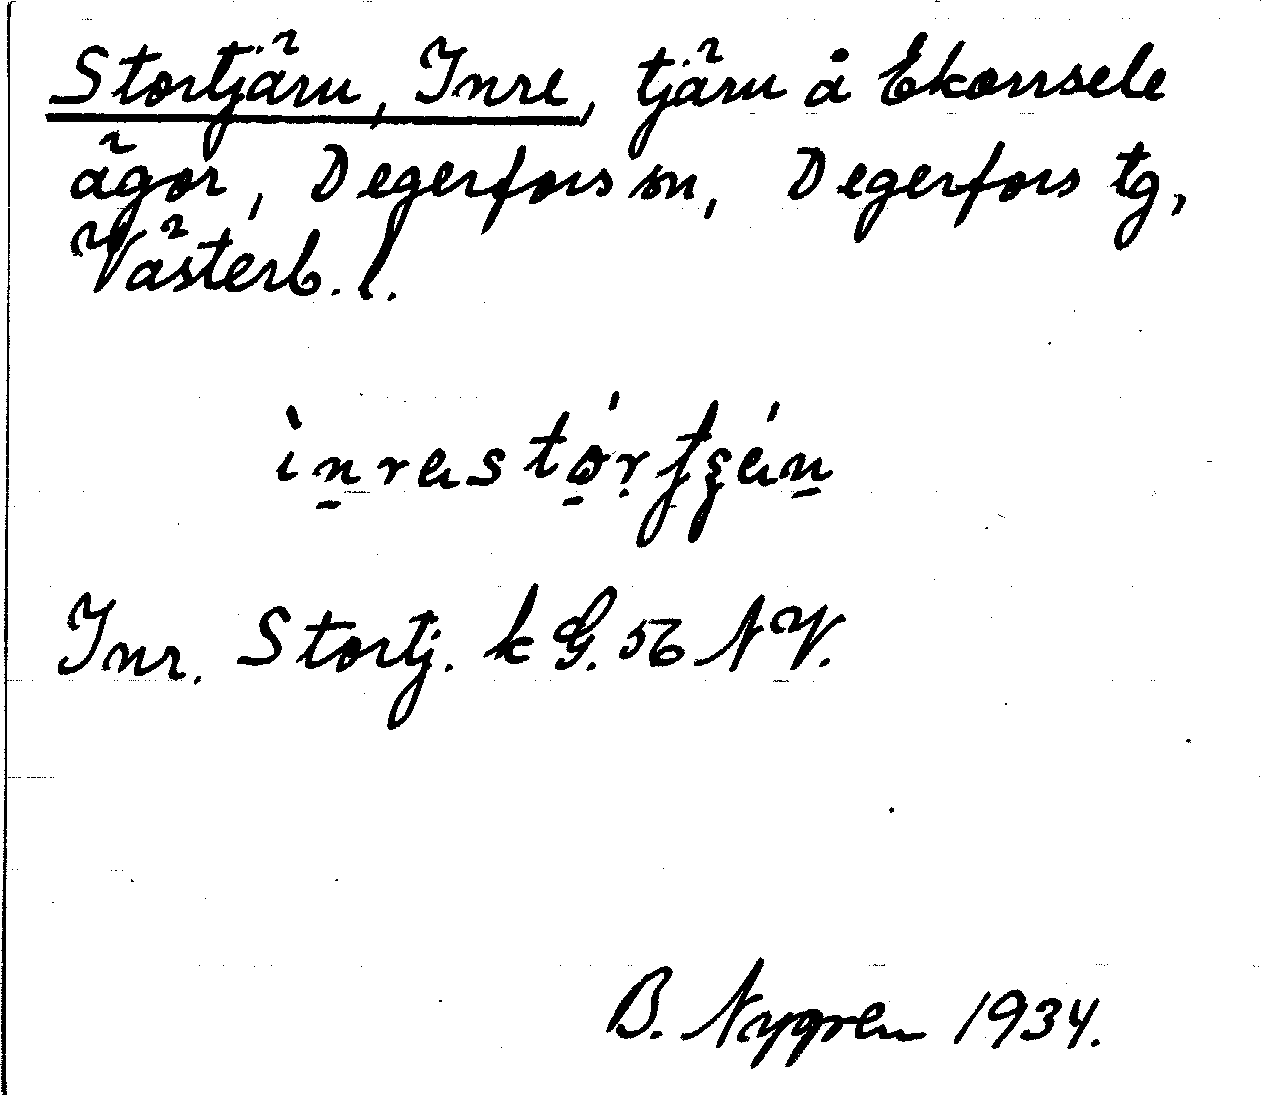 Stortjärn, Inre, tjärn å Ekorrsele
ägor, Degerfors sn, Degerfors tg,
Västerb. l.
Inr. Stortj. k G. 56 NV.
B. Nygren 1934.